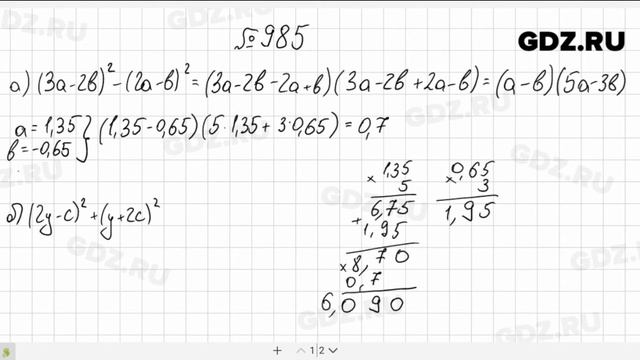 №985
GDZ.RU
а) (3a-2b)² - (2a-b)² = (3a-2b-2a+b)(3a-2b+2a-b) = (a-b)(5a-3b)
a = 1,35
b = -0,65 } (1,35-0,65)(5·1,35+3·0,65) = 0,7
б) (2y-c)² + (y+2c)²
× 1,35
5
6,75
+ 1,95
× 8,70
0,7
6,090
× 0,65
3
1,95
1 2